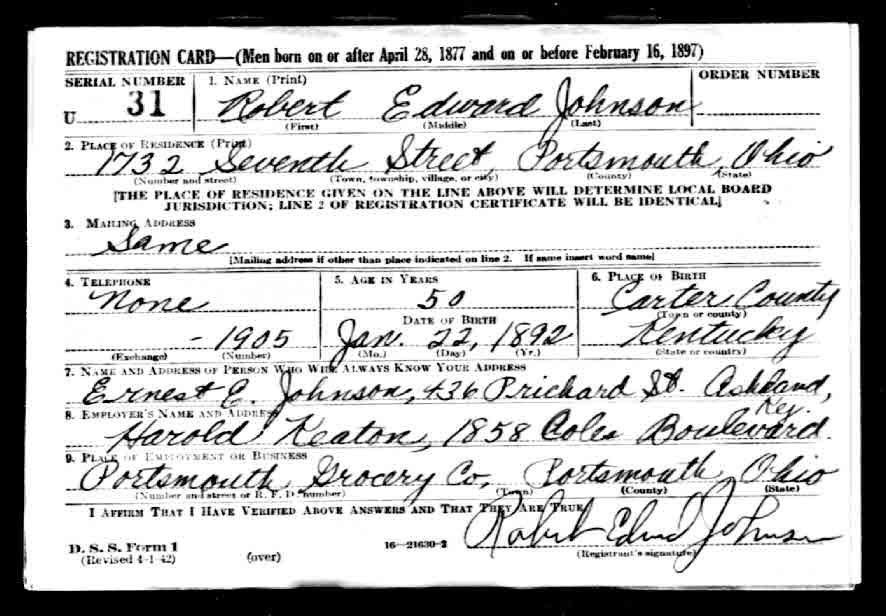 REGISTRATION CARD—(Men born on or after April 28, 1877 and on or before February 16, 1897)
SERIAL NUMBER 1. NAME (Print) ORDER NUMBER
U 31 Robert Edward Johnson
(First) (Middle) (Last)
2. PLACE OF RESIDENCE (Print)
1732 Seventh Street, Portsmouth, Ohio
(Number and street) (Town, township, village, or city) (County) (State)
[THE PLACE OF RESIDENCE GIVEN ON THE LINE ABOVE WILL DETERMINE LOCAL BOARD
JURISDICTION; LINE 2 OF REGISTRATION CERTIFICATE WILL BE IDENTICAL]
3. MAILING ADDRESS
Same
[Mailing address if other than place indicated on line 2. If same insert word same]
4. TELEPHONE 5. AGE IN YEARS 6. PLACE OF BIRTH
None 50 Carter County
DATE OF BIRTH (Town or county)
- 1905 Jan. 22, 1892 Kentucky
(Exchange) (Number) (Mo.) (Day) (Yr.) (State or country)
7. NAME AND ADDRESS OF PERSON WHO WILL ALWAYS KNOW YOUR ADDRESS
Ernest E. Johnson, 436 Prichard St. Ashland,
Key.
8. EMPLOYER'S NAME AND ADDRESS
Harold Keaton, 1858 Coles Boulevard.
9. PLACE OF EMPLOYMENT OR BUSINESS
Portsmouth Grocery Co, Portsmouth, Ohio
(Number and street or R. F. D. number) (Town) (County) (State)
I AFFIRM THAT I HAVE VERIFIED ABOVE ANSWERS AND THAT THEY ARE TRUE.
Robert Edwd Johnson
D. S. S. Form 1 16—21630-2 (Registrant's signature)
(Revised 4-1-42) (over)